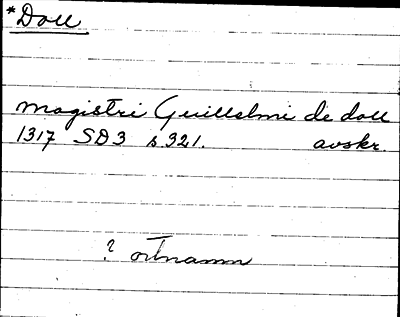 *Doll
magistri Guillelmi de doll
1317 SD3 s 321. avskr.
? ortnamn